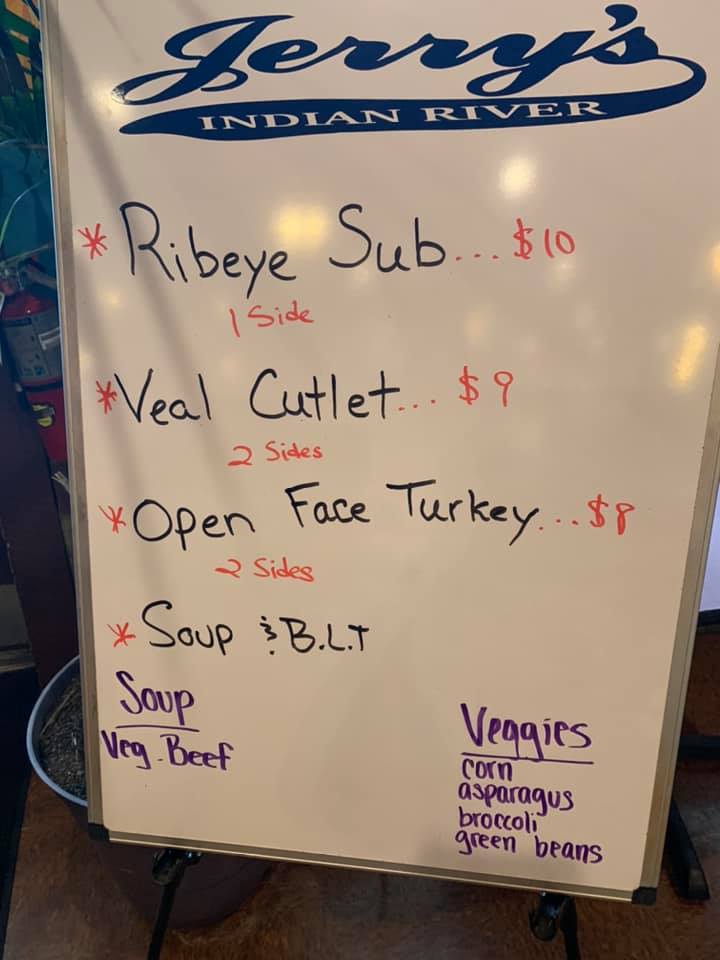 Jerry's
INDIAN RIVER
* Ribeye Sub... $10
1 Side
* Veal Cutlet... $9
2 Sides
* Open Face Turkey... $8
2 Sides
* Soup & B.L.T
Soup
Veg. Beef
Veggies
corn
asparagus
broccoli
green beans